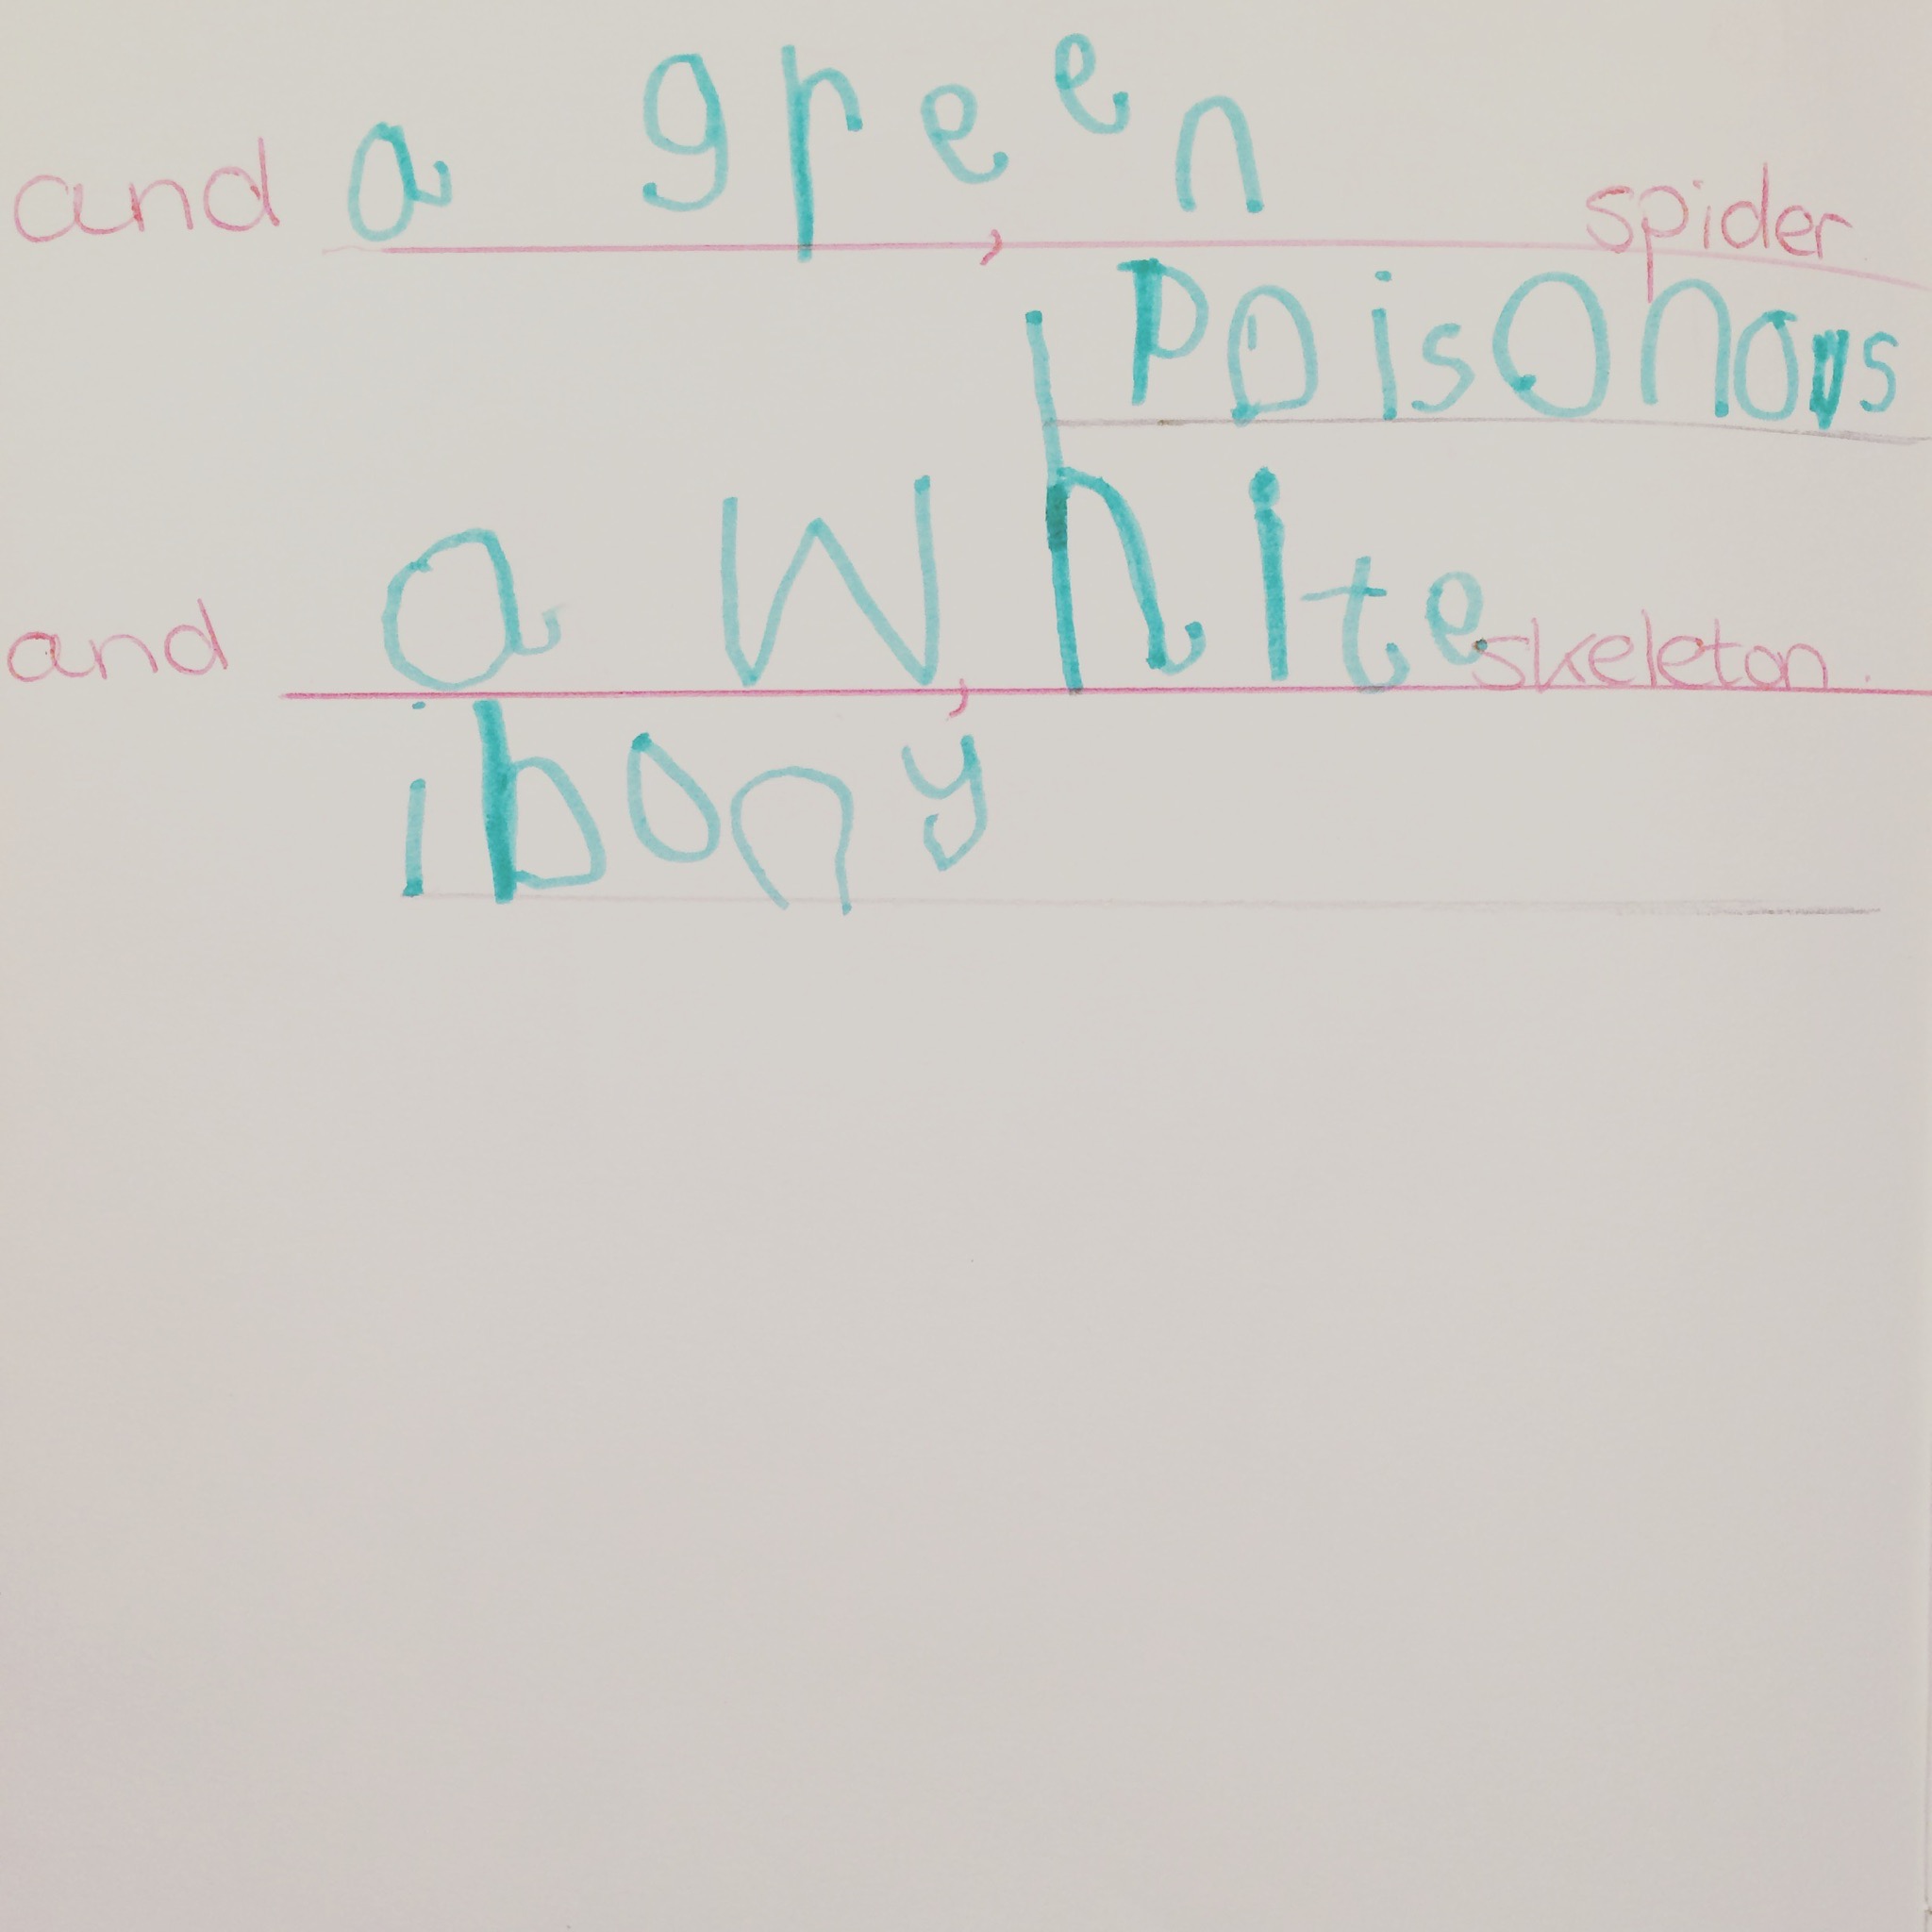 and a green, spider
poisonous
and a white, skeleton.
ibony